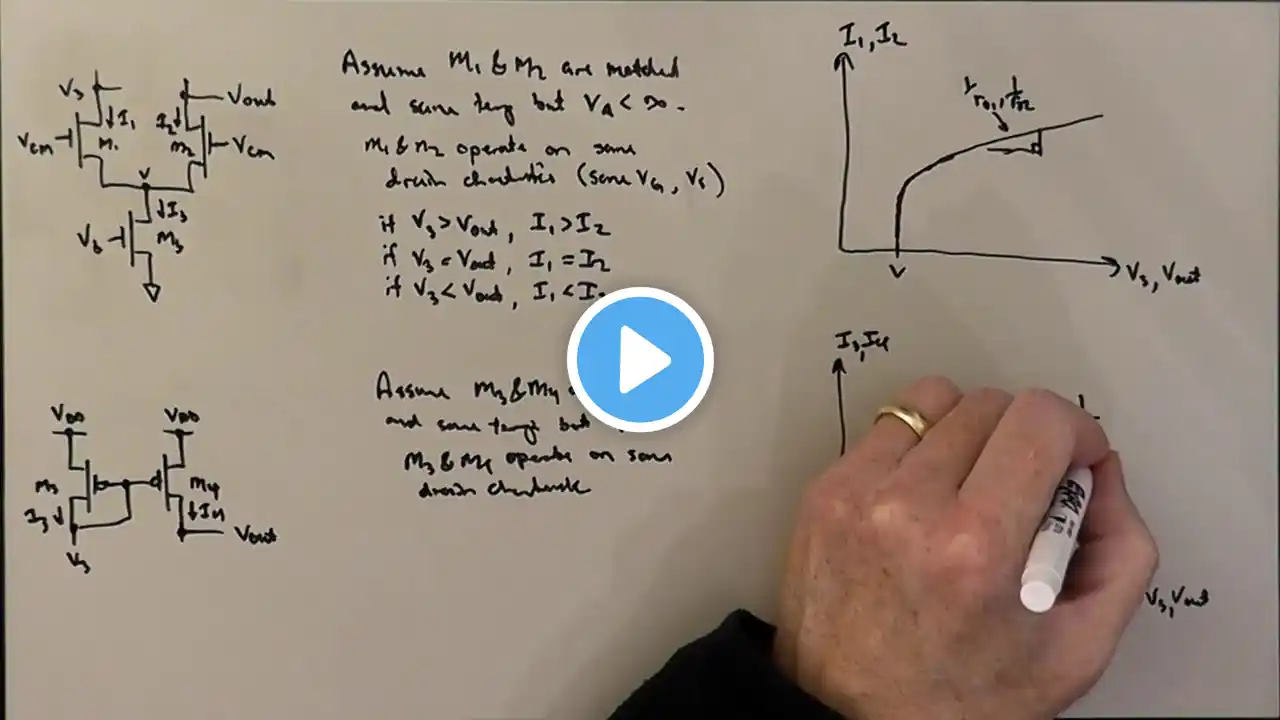 V3
I1
I2
Vout
Vcm
M1
M2
Vcm
V
I3
Vb
M3
Assume M1 & M2 are matched
and same temp but VA < ∞.
M1 & M2 operate on same
drain (same VG, VS)
if V3 > Vout, I1 > I2
if V3 = Vout, I1 = I2
if V3 < Vout, I1 < I
I1, I2
1/r01, 1/r02
V
V3, Vout
VDD
VDD
M3
M4
I3
I4
Vout
V3
Assume M3 & M4
and same temp but
M3 & M4 operate on same
drain
I3, I4
1
V3, Vout